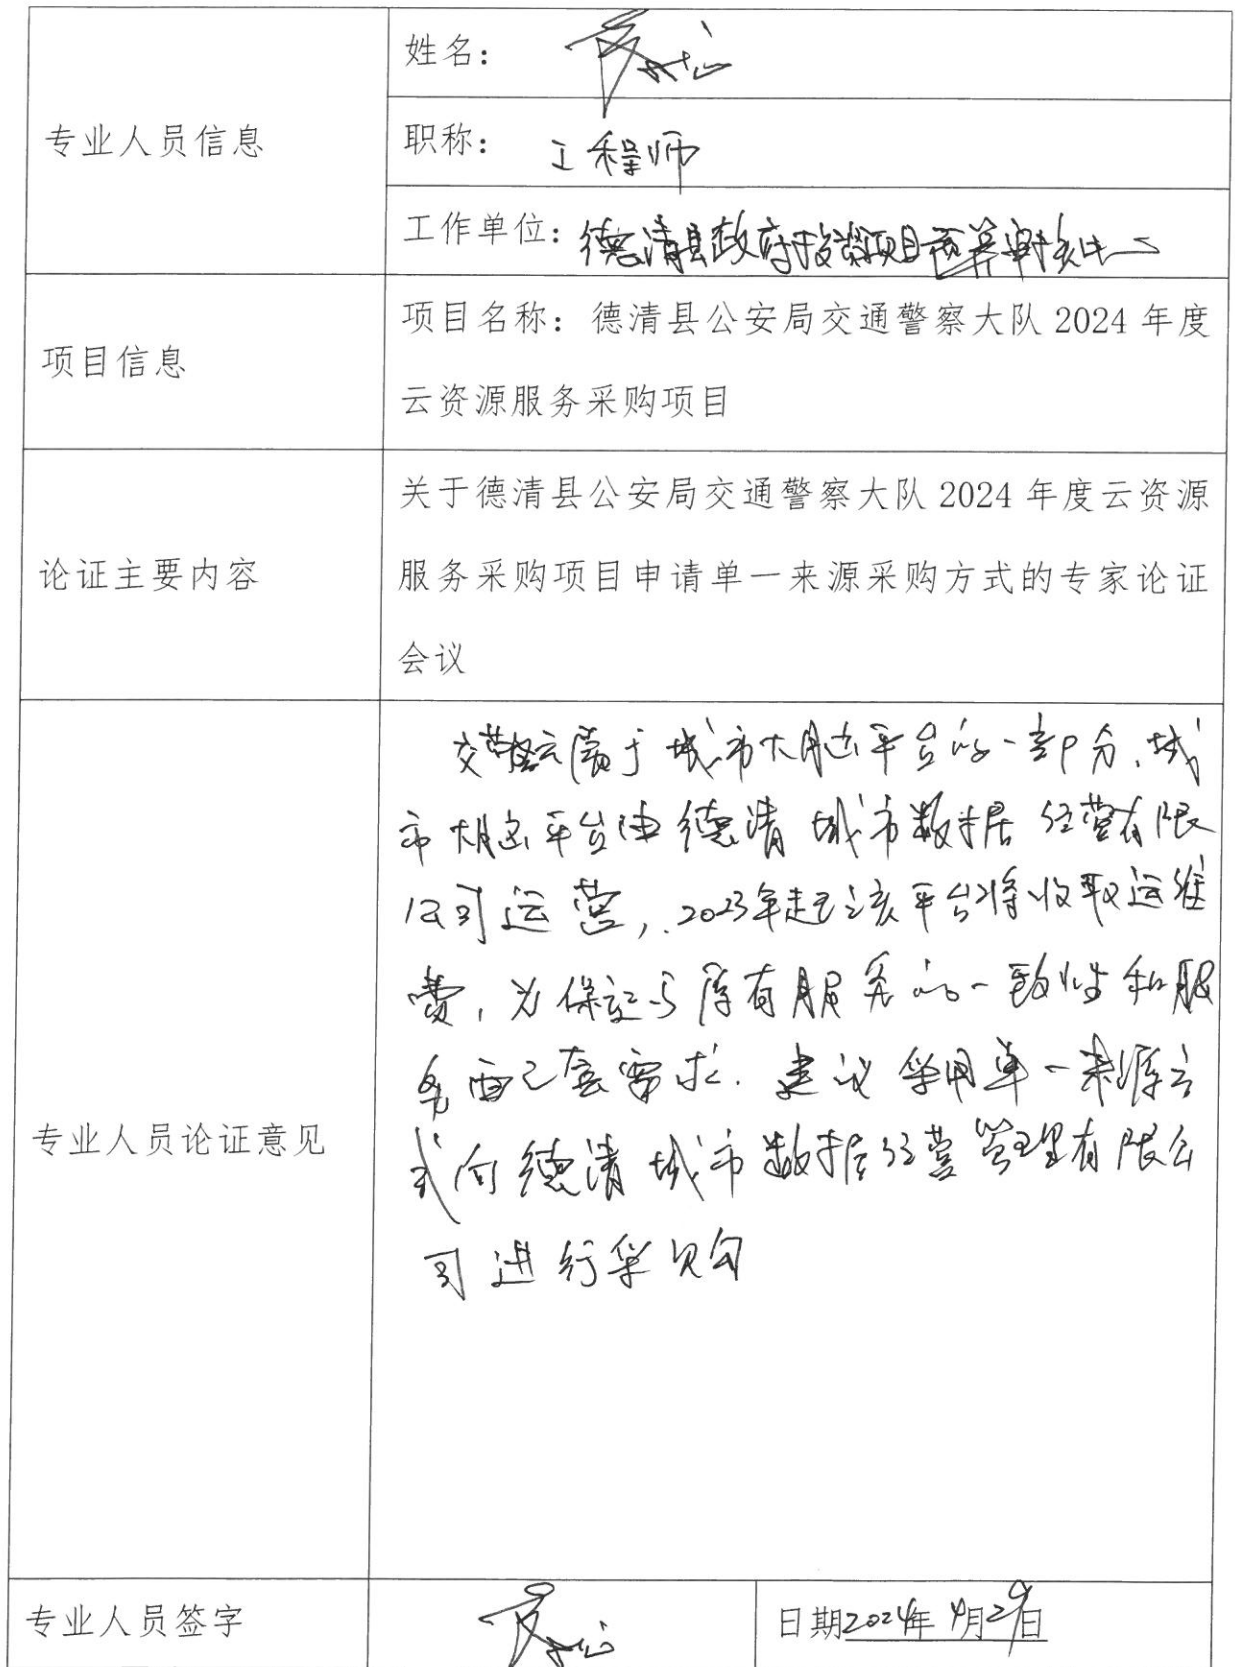 姓名：
专业人员信息
职称：工程师
工作单位：德清县政府投资项目预算审核中心
项目信息
项目名称：德清县公安局交通警察大队 2024 年度
云资源服务采购项目
论证主要内容
关于德清县公安局交通警察大队 2024 年度云资源
服务采购项目申请单一来源采购方式的专家论证
会议
专业人员论证意见
交警云属于城市大脑平台的一部分，城
市大脑平台由德清城市数据经营有限
公司运营，2023年起该平台将收取运维
费，为保证与原有服务的一致性和服
务配套需求．建议采用单一来源方
式向德清城市数据经营管理有限公
司进行采购
专业人员签字
日期2024年4月29日